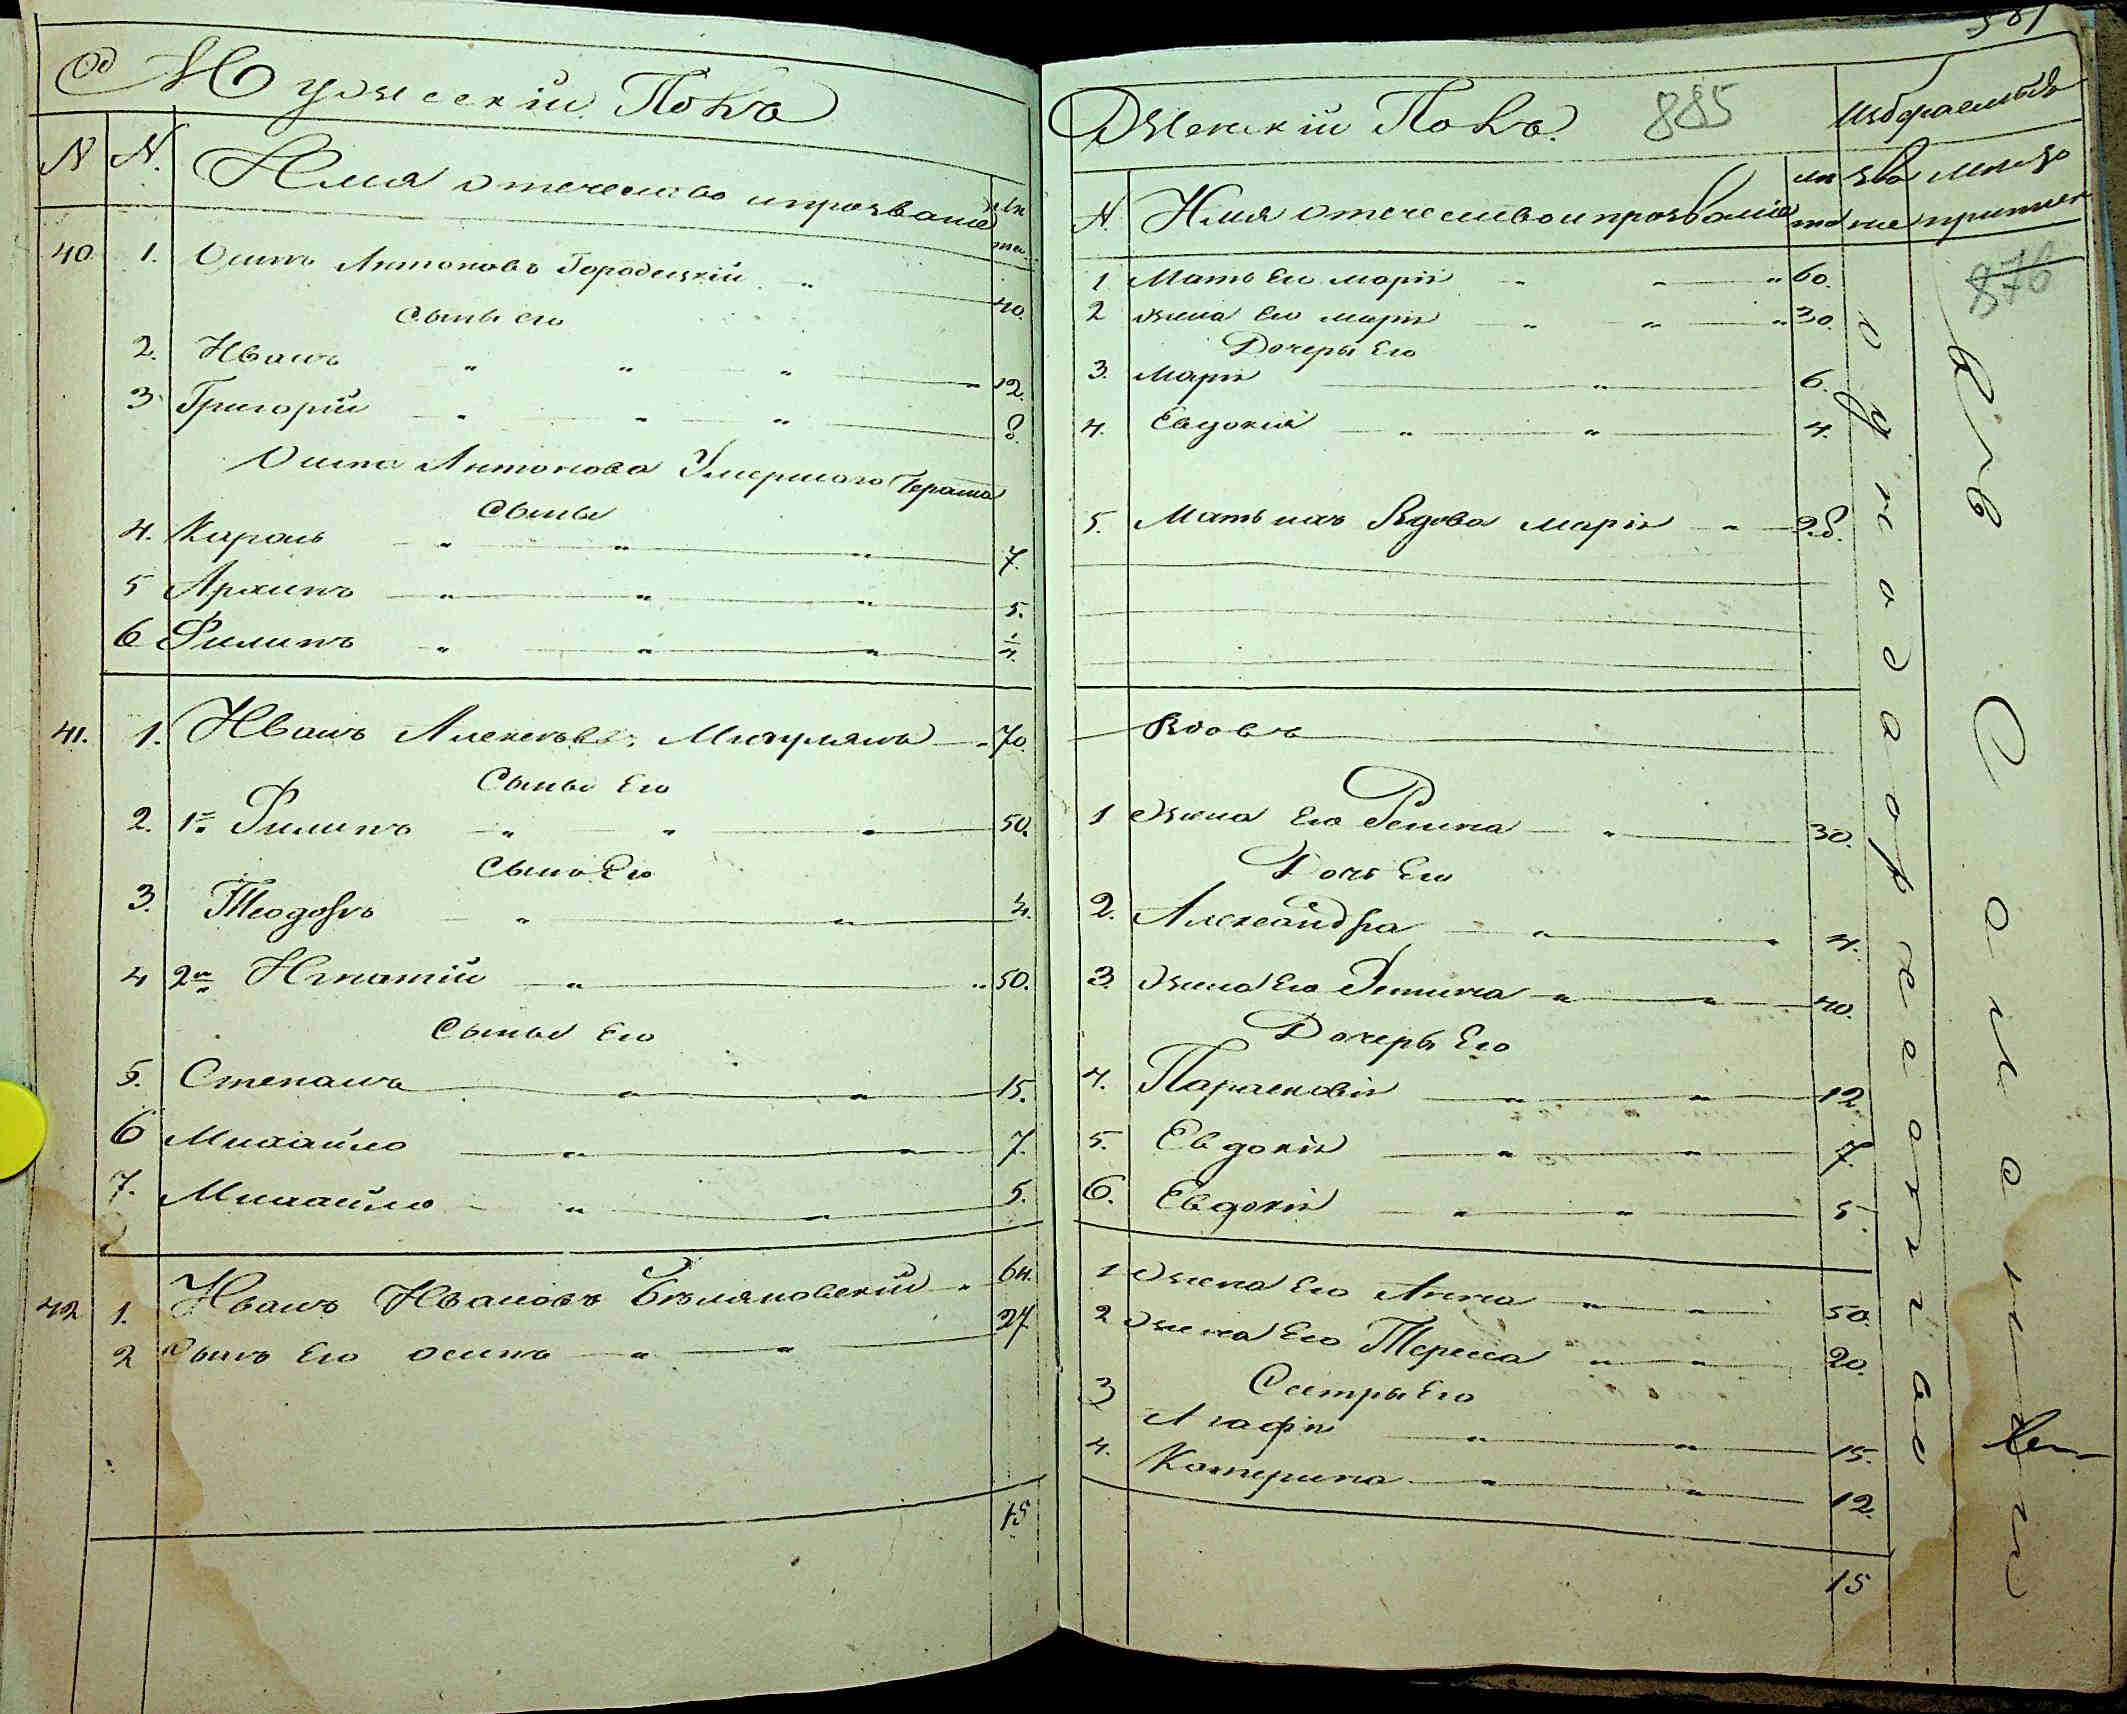 Мужескій Полъ
N N. Имя отечество и прозваніе лѣта
40 1. Осипъ Антоновъ Городецкій 40.
Сыны его
2. Иванъ 12.
3. Григорій 8.
Осипа Антонова Умершого Брата
Сыны
4. Кароль 7.
5 Архипъ 5.
6 Филипъ
41. 1. Иванъ Алексѣевъ Микулякъ 70.
Сыны Его
2. 1й Филипъ 50.
Сынъ Его
3. Теодоръ 4.
4 2й Игнатій 50.
Сыны Его
5. Степанъ 15.
6 Михайло 7.
7. Михайло 5.
42 1. Иванъ Ивановъ Бѣляновскій 64.
2 Сынъ Его Осипъ 27.
15
Женскій Полъ. 885
N. Имя отечество и прозваніе лѣта
876
1 Мать Его Марія 60.
2 Жена Его Марія 30.
Дочеры Его
3. Марія 6.
4. Евдокія 4.
5. Мать ихъ Вдова Марія 28.
Вдовъ
1 Жена Его 30.
Дочь Его
2. Александра 4.
3. Жена Его 40.
Дочеры Его
4. Параскевія 12
5. Евдокія 7.
6. Евдокія 5.
1 Жена Его Анна 50.
2 Жена Его Тереса 20.
Сестры Его
3 Агафія 15.
4. Катерина 12.
15